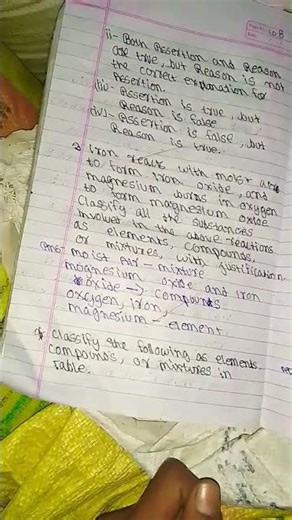 ii- Both Assertion and Reason
are true, but Reason is not
the correct explanation for
Assertion.
(iii- Assertion is true, but
Reason is false
(iv)- Assertion is false, but
Reason is true.
Iron reacts with moist air
to form Iron oxide, and
magnesium burns in oxygen
to form magnesium oxide
Classify all the substances
involve in the above reactions
as elements, compounds,
or mixtures, with justification.
moist Air - mixture
magnesium oxide and Iron
oxide → compounds
oxygen, iron,
magnesium - element.
Classify the following as elements
compounds, or mixtures in
table.